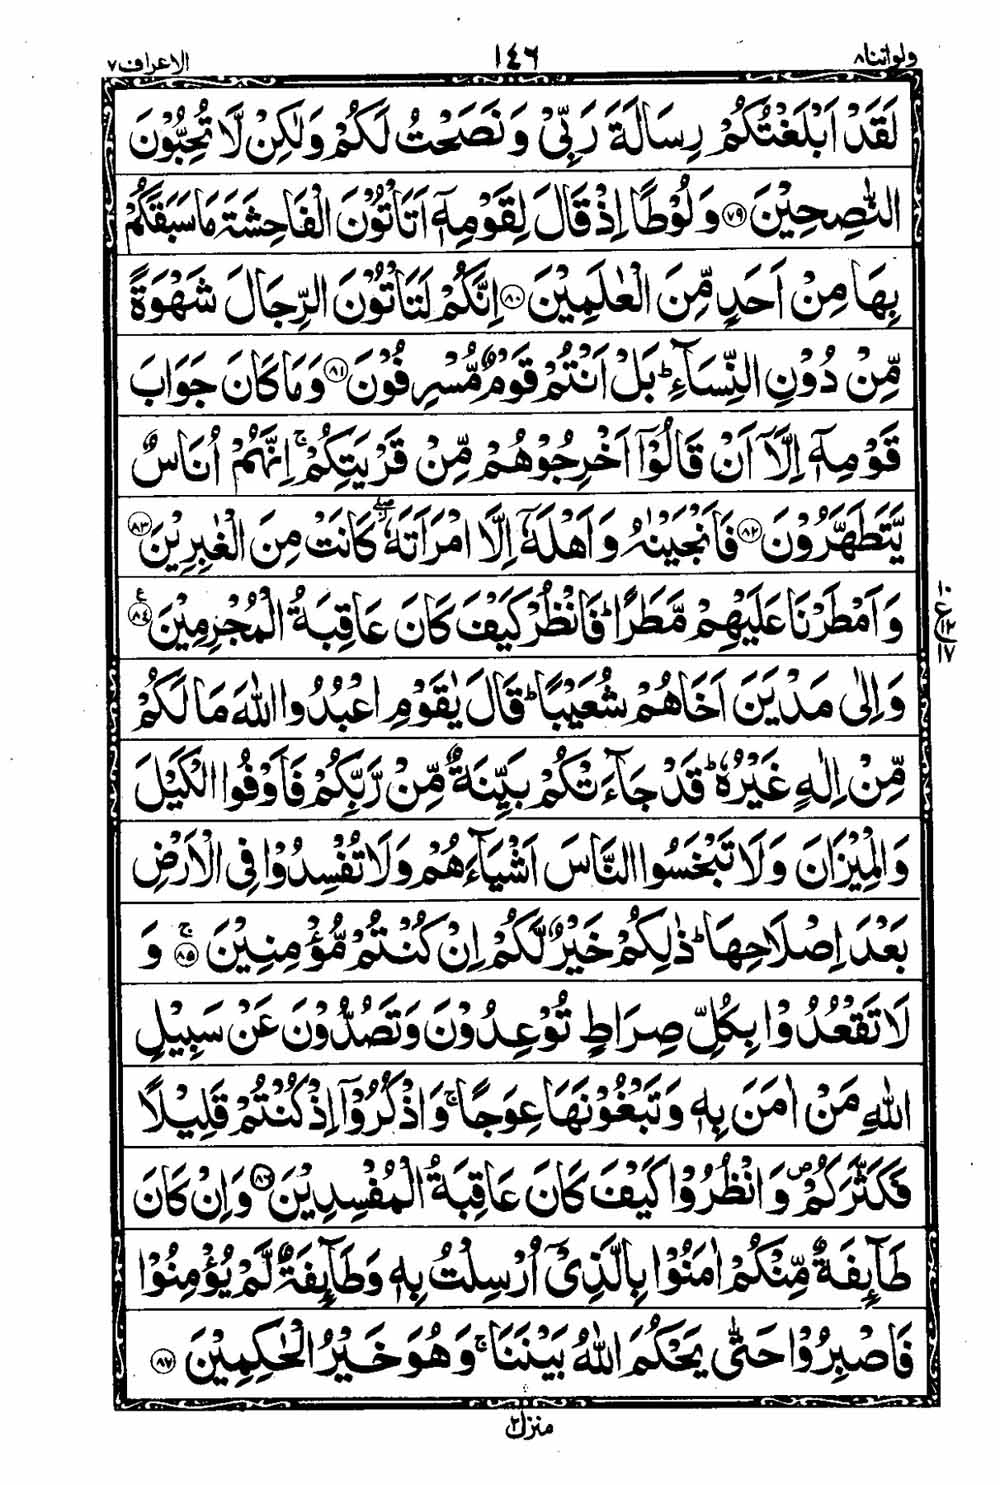 ولواننا ٨ ١٤٦ الاعراف ٧
لَقَدْ اَبْلَغْتُكُمْ رِسَالَةَ رَبِّىْ وَنَصَحْتُ لَكُمْ وَلٰكِنْ لَّا تُحِبُّوْنَ
النّٰصِحِيْنَ ﴿٧٩﴾ وَلُوْطًا اِذْ قَالَ لِقَوْمِهٖٓ اَتَاْتُوْنَ الْفَاحِشَةَ مَا سَبَقَكُمْ
بِهَا مِنْ اَحَدٍ مِّنَ الْعٰلَمِيْنَ ﴿٨٠﴾ اِنَّكُمْ لَتَاْتُوْنَ الرِّجَالَ شَهْوَةً
مِّنْ دُوْنِ النِّسَآءِ ؕ بَلْ اَنْتُمْ قَوْمٌ مُّسْرِفُوْنَ ﴿٨١﴾ وَمَا كَانَ جَوَابَ
قَوْمِهٖٓ اِلَّآ اَنْ قَالُوْٓا اَخْرِجُوْهُمْ مِّنْ قَرْيَتِكُمْ ۚ اِنَّهُمْ اُنَاسٌ
يَّتَطَهَّرُوْنَ ﴿٨٢﴾ فَاَنْجَيْنٰهُ وَاَهْلَهٗٓ اِلَّا امْرَاَتَهٗ ۖ كَانَتْ مِنَ الْغٰبِرِيْنَ ﴿٨٣﴾
وَاَمْطَرْنَا عَلَيْهِمْ مَّطَرًا ؕ فَانْظُرْ كَيْفَ كَانَ عَاقِبَةُ الْمُجْرِمِيْنَ ﴿٨٤﴾ ع
١٠ ع ١٢ ١٧
وَاِلٰى مَدْيَنَ اَخَاهُمْ شُعَيْبًا ؕ قَالَ يٰقَوْمِ اعْبُدُوا اللّٰهَ مَا لَكُمْ
مِّنْ اِلٰهٍ غَيْرُهٗ ؕ قَدْ جَآءَتْكُمْ بَيِّنَةٌ مِّنْ رَّبِّكُمْ فَاَوْفُوا الْكَيْلَ
وَالْمِيْزَانَ وَلَا تَبْخَسُوا النَّاسَ اَشْيَآءَهُمْ وَلَا تُفْسِدُوْا فِى الْاَرْضِ
بَعْدَ اِصْلَاحِهَا ؕ ذٰلِكُمْ خَيْرٌ لَّكُمْ اِنْ كُنْتُمْ مُّؤْمِنِيْنَ ۚ ﴿٨٥﴾ وَ
لَا تَقْعُدُوْا بِكُلِّ صِرَاطٍ تُوْعِدُوْنَ وَتَصُدُّوْنَ عَنْ سَبِيْلِ
اللّٰهِ مَنْ اٰمَنَ بِهٖ وَتَبْغُوْنَهَا عِوَجًا ۚ وَاذْكُرُوْٓا اِذْ كُنْتُمْ قَلِيْلًا
فَكَثَّرَكُمْ ۖ وَانْظُرُوْا كَيْفَ كَانَ عَاقِبَةُ الْمُفْسِدِيْنَ ﴿٨٦﴾ وَاِنْ كَانَ
طَآئِفَةٌ مِّنْكُمْ اٰمَنُوْا بِالَّذِىْٓ اُرْسِلْتُ بِهٖ وَطَآئِفَةٌ لَّمْ يُؤْمِنُوْا
فَاصْبِرُوْا حَتّٰى يَحْكُمَ اللّٰهُ بَيْنَنَا ۚ وَهُوَ خَيْرُ الْحٰكِمِيْنَ ﴿٨٧﴾
منزل ٢